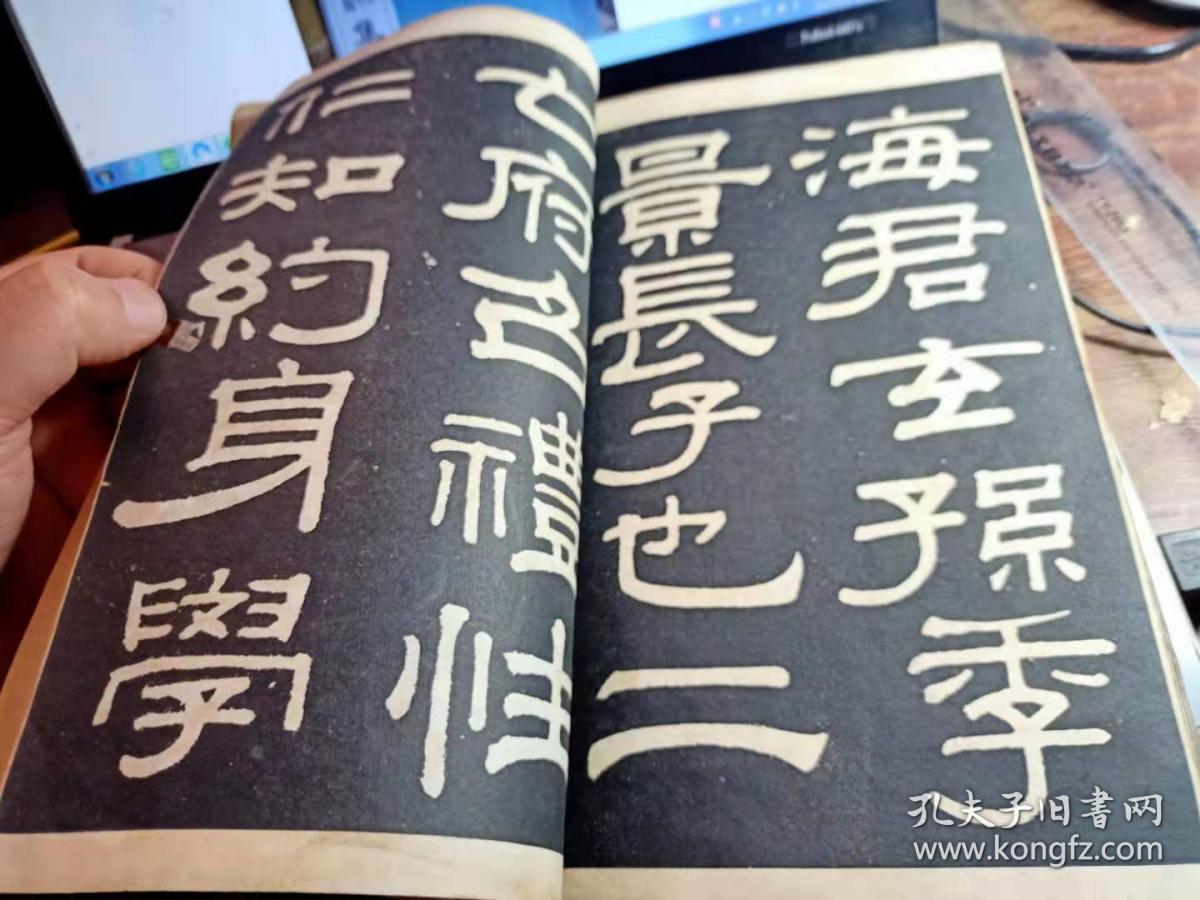 海君玄孫季
景長子也二
府 禮性
仁知約身學
孔夫子旧書网
www.kongfz.com